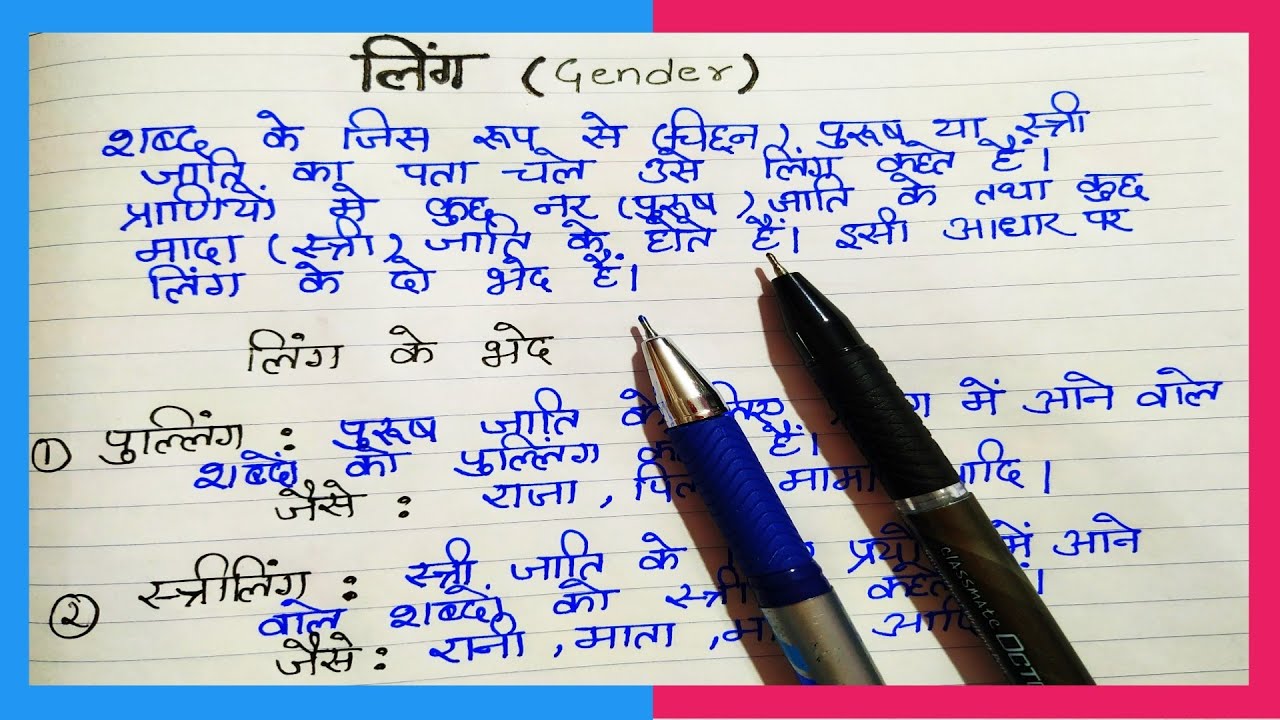 लिंग (Gender)
शब्द के जिस रूप से (चिह्न) पुरूष या स्त्री
जाति का पता चले उसे लिंग कहते हैं।
प्राणियों में कुछ नर (पुरूष) जाति के तथा कुछ
मादा (स्त्री) जाति के होते हैं। इसी आधार पर
लिंग के दो भेद हैं।
लिंग के भेद
① पुल्लिंग : पुरूष जाति के में आने वाेल
शब्दों को पुल्लिंग हैं।
जैसे : राजा , मामा
② स्त्रीलिंग : स्त्री जाति के में आने
वाेल शब्दों को
जैसे : रानी , माता ,
CLASSMATE OCT